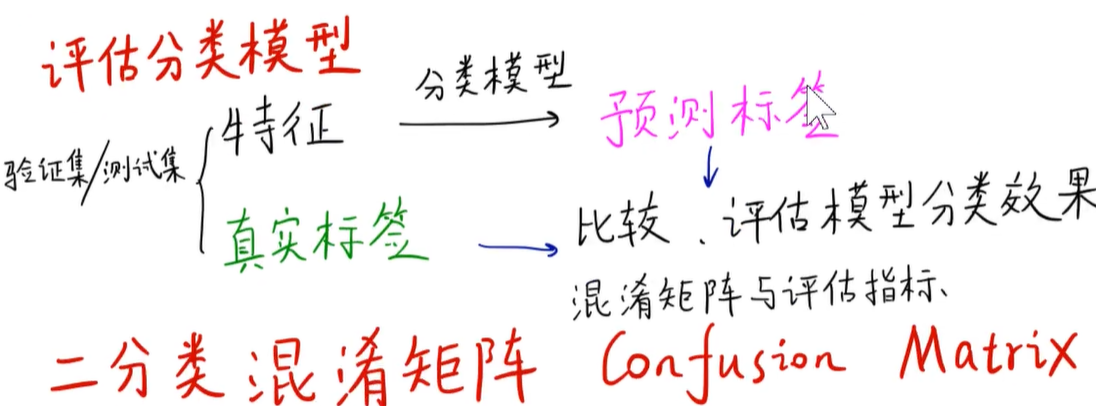 评估分类模型
分类模型
特征
预测标签
验证集/测试集
真实标签
比较、评估模型分类效果
混淆矩阵与评估指标、
二分类混淆矩阵 Confusion Matrix